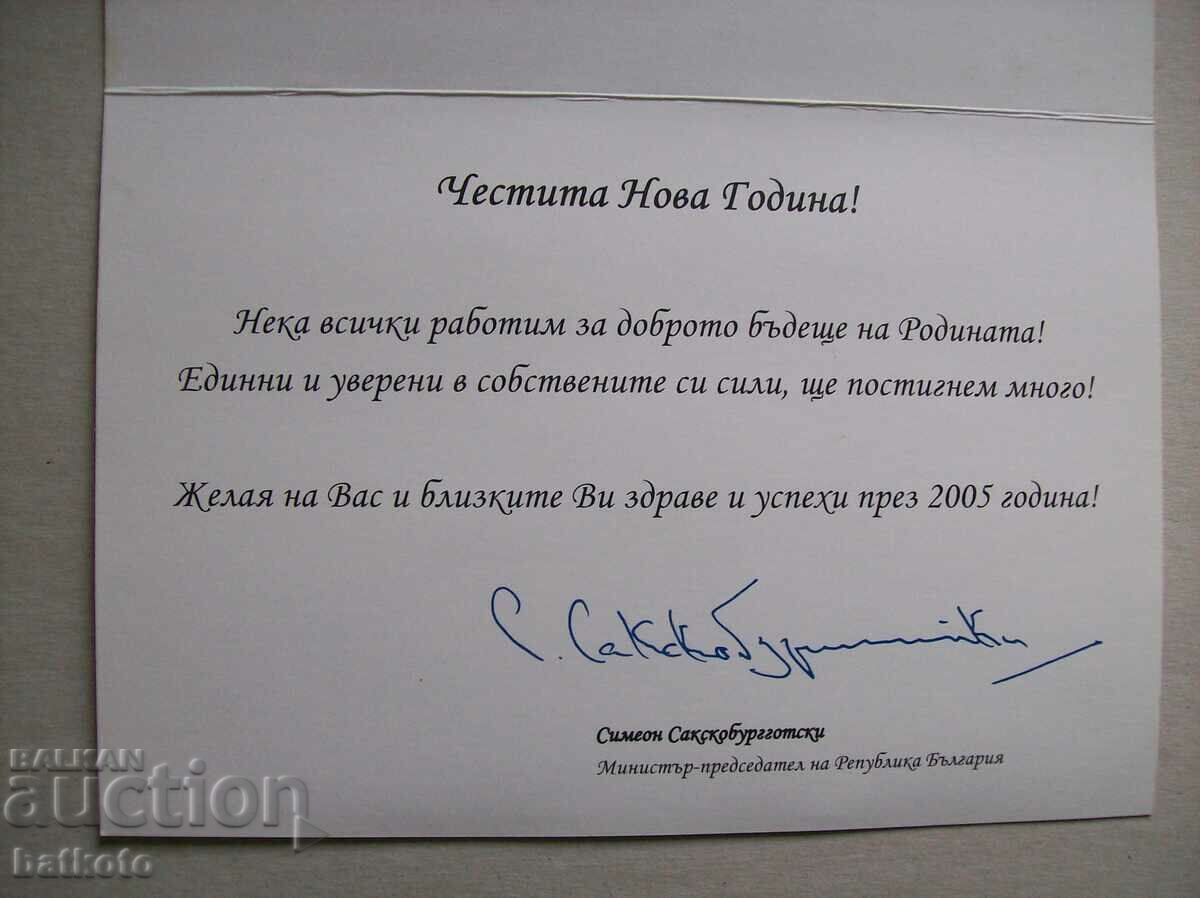 Честита Нова Година!
Нека всички работим за доброто бъдеще на Родината!
Единни и уверени в собствените си сили, ще постигнем много!
Желая на Вас и близките Ви здраве и успехи през 2005 година!
С. Сакскобургготски
Симеон Сакскобургготски
Министър-председател на Република България
BALKAN
auction
batkoto